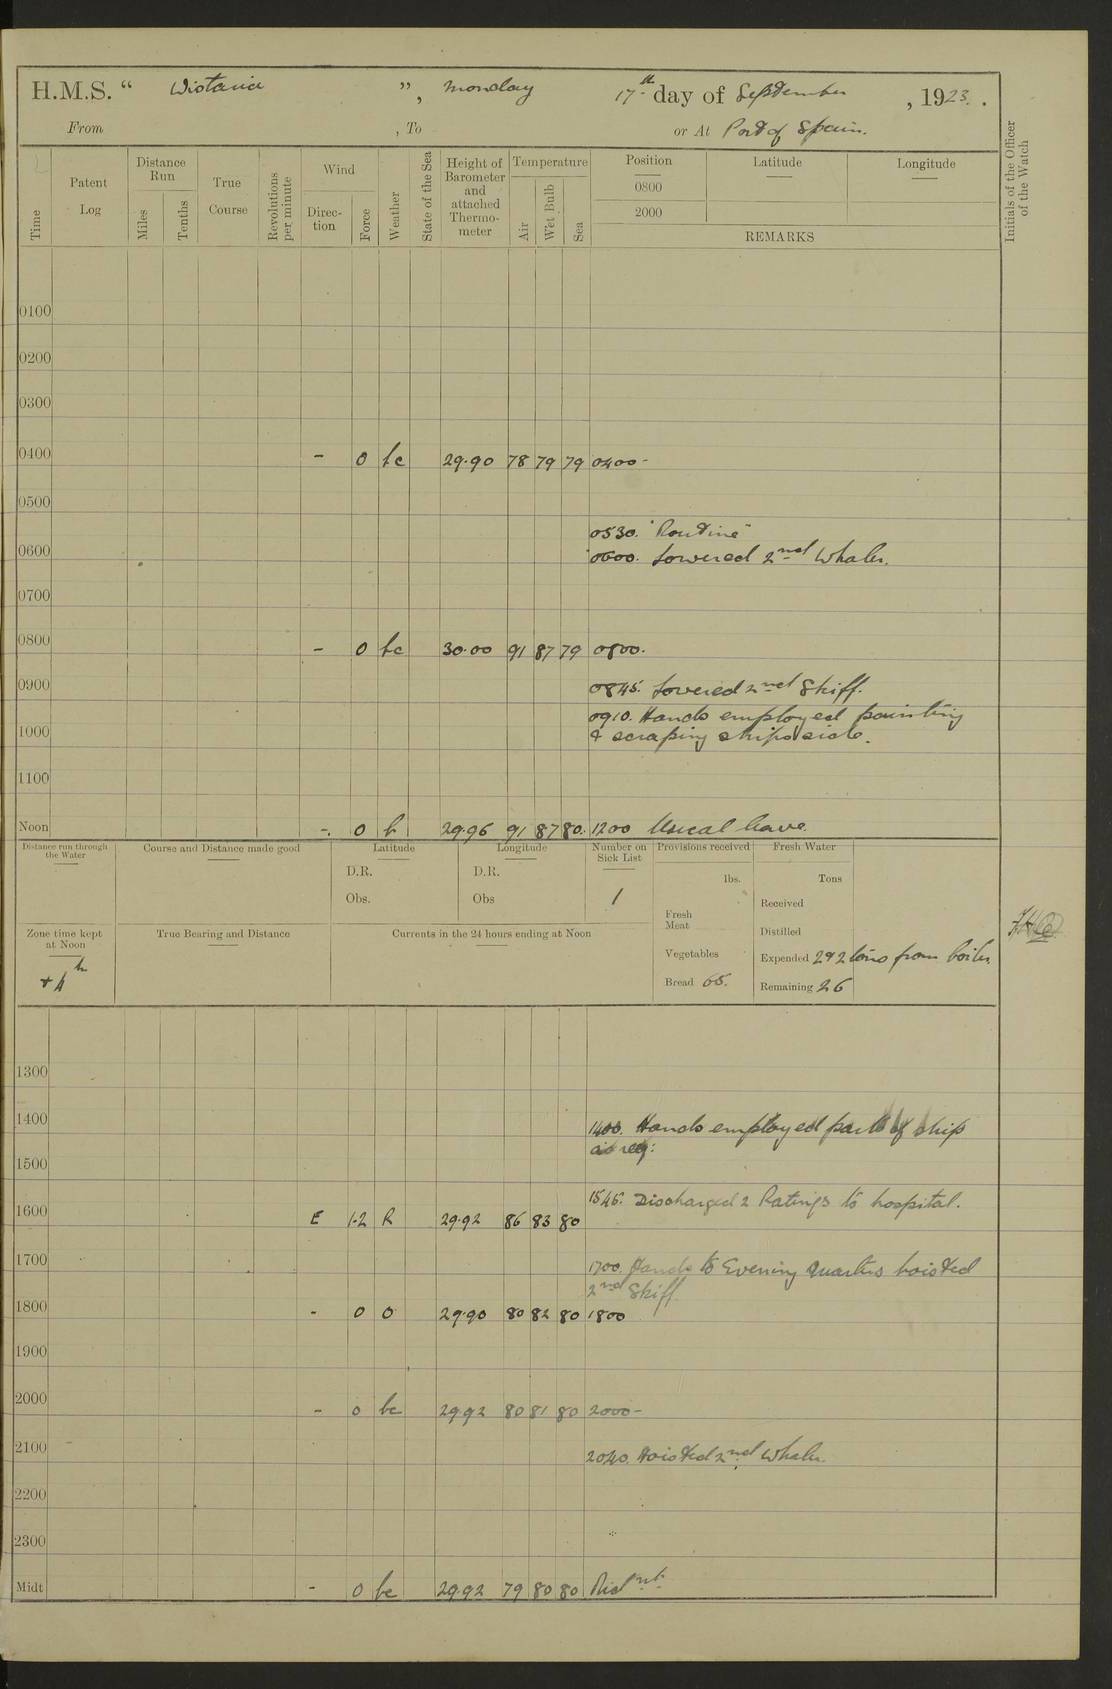 H.M.S. “ Wistaria ”, Monday 17th day of September, 1923.
From , To or At Port of Spain.
Time
Patent Log
Distance Run
Miles
Tenths
True Course
Revolutions per minute
Wind
Direction
Force
Weather
State of the Sea
Height of Barometer and attached Thermometer
Temperature
Air
Wet Bulb
Sea
Position Latitude Longitude
0800
2000
REMARKS
Initials of the Officer of the Watch
0100
0200
0300
0400 - 0 bc 29.90 78 79 79 0400-
0500
0530. "Routine"
0600 0600. Lowered 2nd Whaler.
0700
0800 - 0 bc 30.00 91 87 79 0800.
0900 0845. Lowered 2nd Skiff.
0910. Hands employed painting
1000 & scraping ships side.
1100
Noon -. 0 b 29.96 91 87 80. 1200 Usual leave.
Distance run through the Water
Course and Distance made good
Latitude
D.R.
Obs.
Longitude
D.R.
Obs
Number on Sick List
1
Provisions received
lbs.
Fresh Meat
Vegetables
Bread 65.
Fresh Water
Tons
Received
Distilled
Expended 2 tons from boiler.
Remaining 26
Zone time kept at Noon
+4h
True Bearing and Distance
Currents in the 24 hours ending at Noon
1300
1400 1400. Hands employed parts of ship
as req:
1500
1545. Discharged 2 Ratings to hospital.
1600 E 1-2 R 29.92 86 83 80
1700 1700. Hands to Evening Quarters hoisted
2nd Skiff.
1800 - 0 0 29.90 80 82 80 1800
1900
2000 - 0 bc 29.92 80 81 80 2000-
2100 2040. Hoisted 2nd Whaler.
2200
2300
Midt - 0 bc 29.92 79 80 80